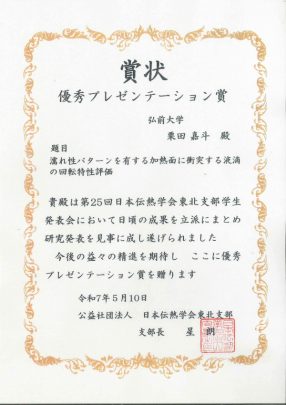 賞状
優秀プレゼンテーション賞
弘前大学
栗田 嘉斗 殿
題目
濡れ性パターンを有する加熱面に衝突する液滴
の回転特性評価
貴殿は第25回日本伝熱学会東北支部学生
発表会において日頃の成果を立派にまとめ
研究発表を見事に成し遂げられました
今後の益々の精進を期待し ここに優秀
プレゼンテーション賞を贈ります
令和7年5月10日
公益社団法人 日本伝熱学会東北支部
支部長 星 朗